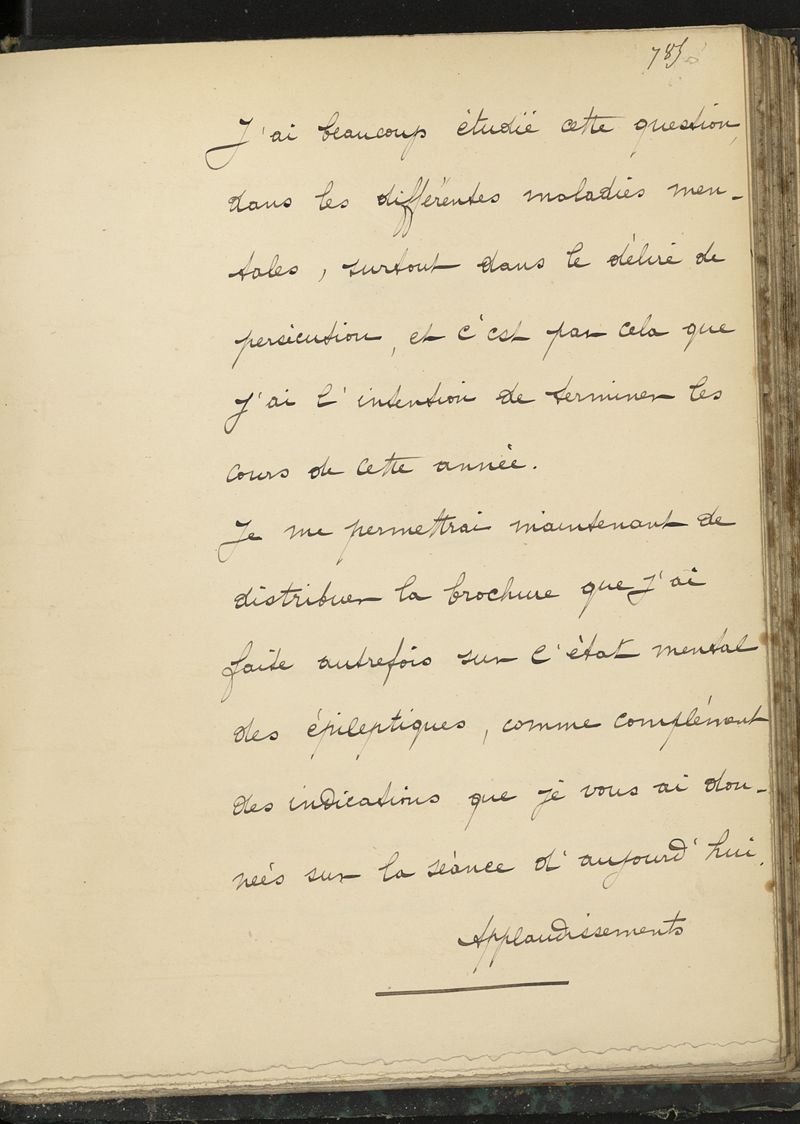 785
J'ai beaucoup étudié cette question,
dans les différentes maladies men-
tales, surtout dans le délire de
persécution, et c'est par cela que
j'ai l'intention de terminer les
cours de cette année.
Je me permettrai maintenant de
distribuer la brochure que j'ai
faite autrefois sur l'état mental
des épileptiques, comme complément
des indications que je vous ai don-
nées sur la séance d'aujourd'hui.
Applaudissements